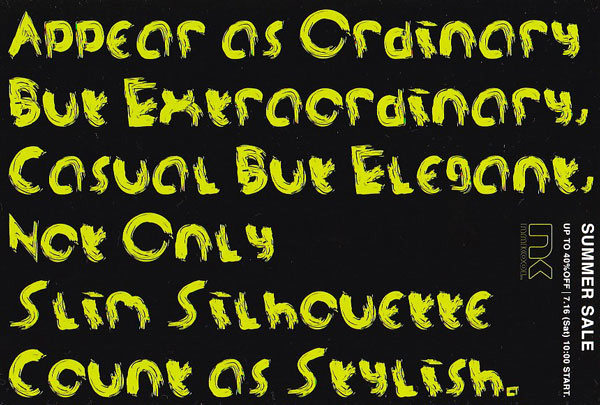 Appear as Ordinary
But Extraordinary,
Casual But Elegant,
Not Only
Slim Silhouette
Count as Stylish.
SUMMER SALE
UP TO 40%OFF | 7.16 (Sat) 10:00 START.
NK